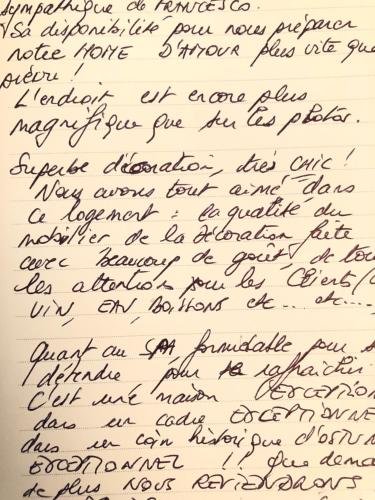 sympathique de FRANCESCO.
Sa disponibilité pour nous préparer
notre HOME D'AMOUR plus vite que
prévu !
L'endroit est encore plus
magnifique que sur les photos.
Superbe décoration, très CHIC !
Nous avons tout aimé dans
ce logement : la qualité du
mobilier de la décoration faite
avec beaucoup de goût, de tou
les attentions pour les Clients (
VIN, EAU, BOISSONS etc... etc...,
Quant au SPA, formidable pour s
détendre pour se rafraichir
C'est une maison EXCEPTION
dans un cadre EXCEPTIONNE
dans un coin historique d'OSTUN
EXCEPTIONNEL !! Que dema
de plus NOUS REVIENDRONS